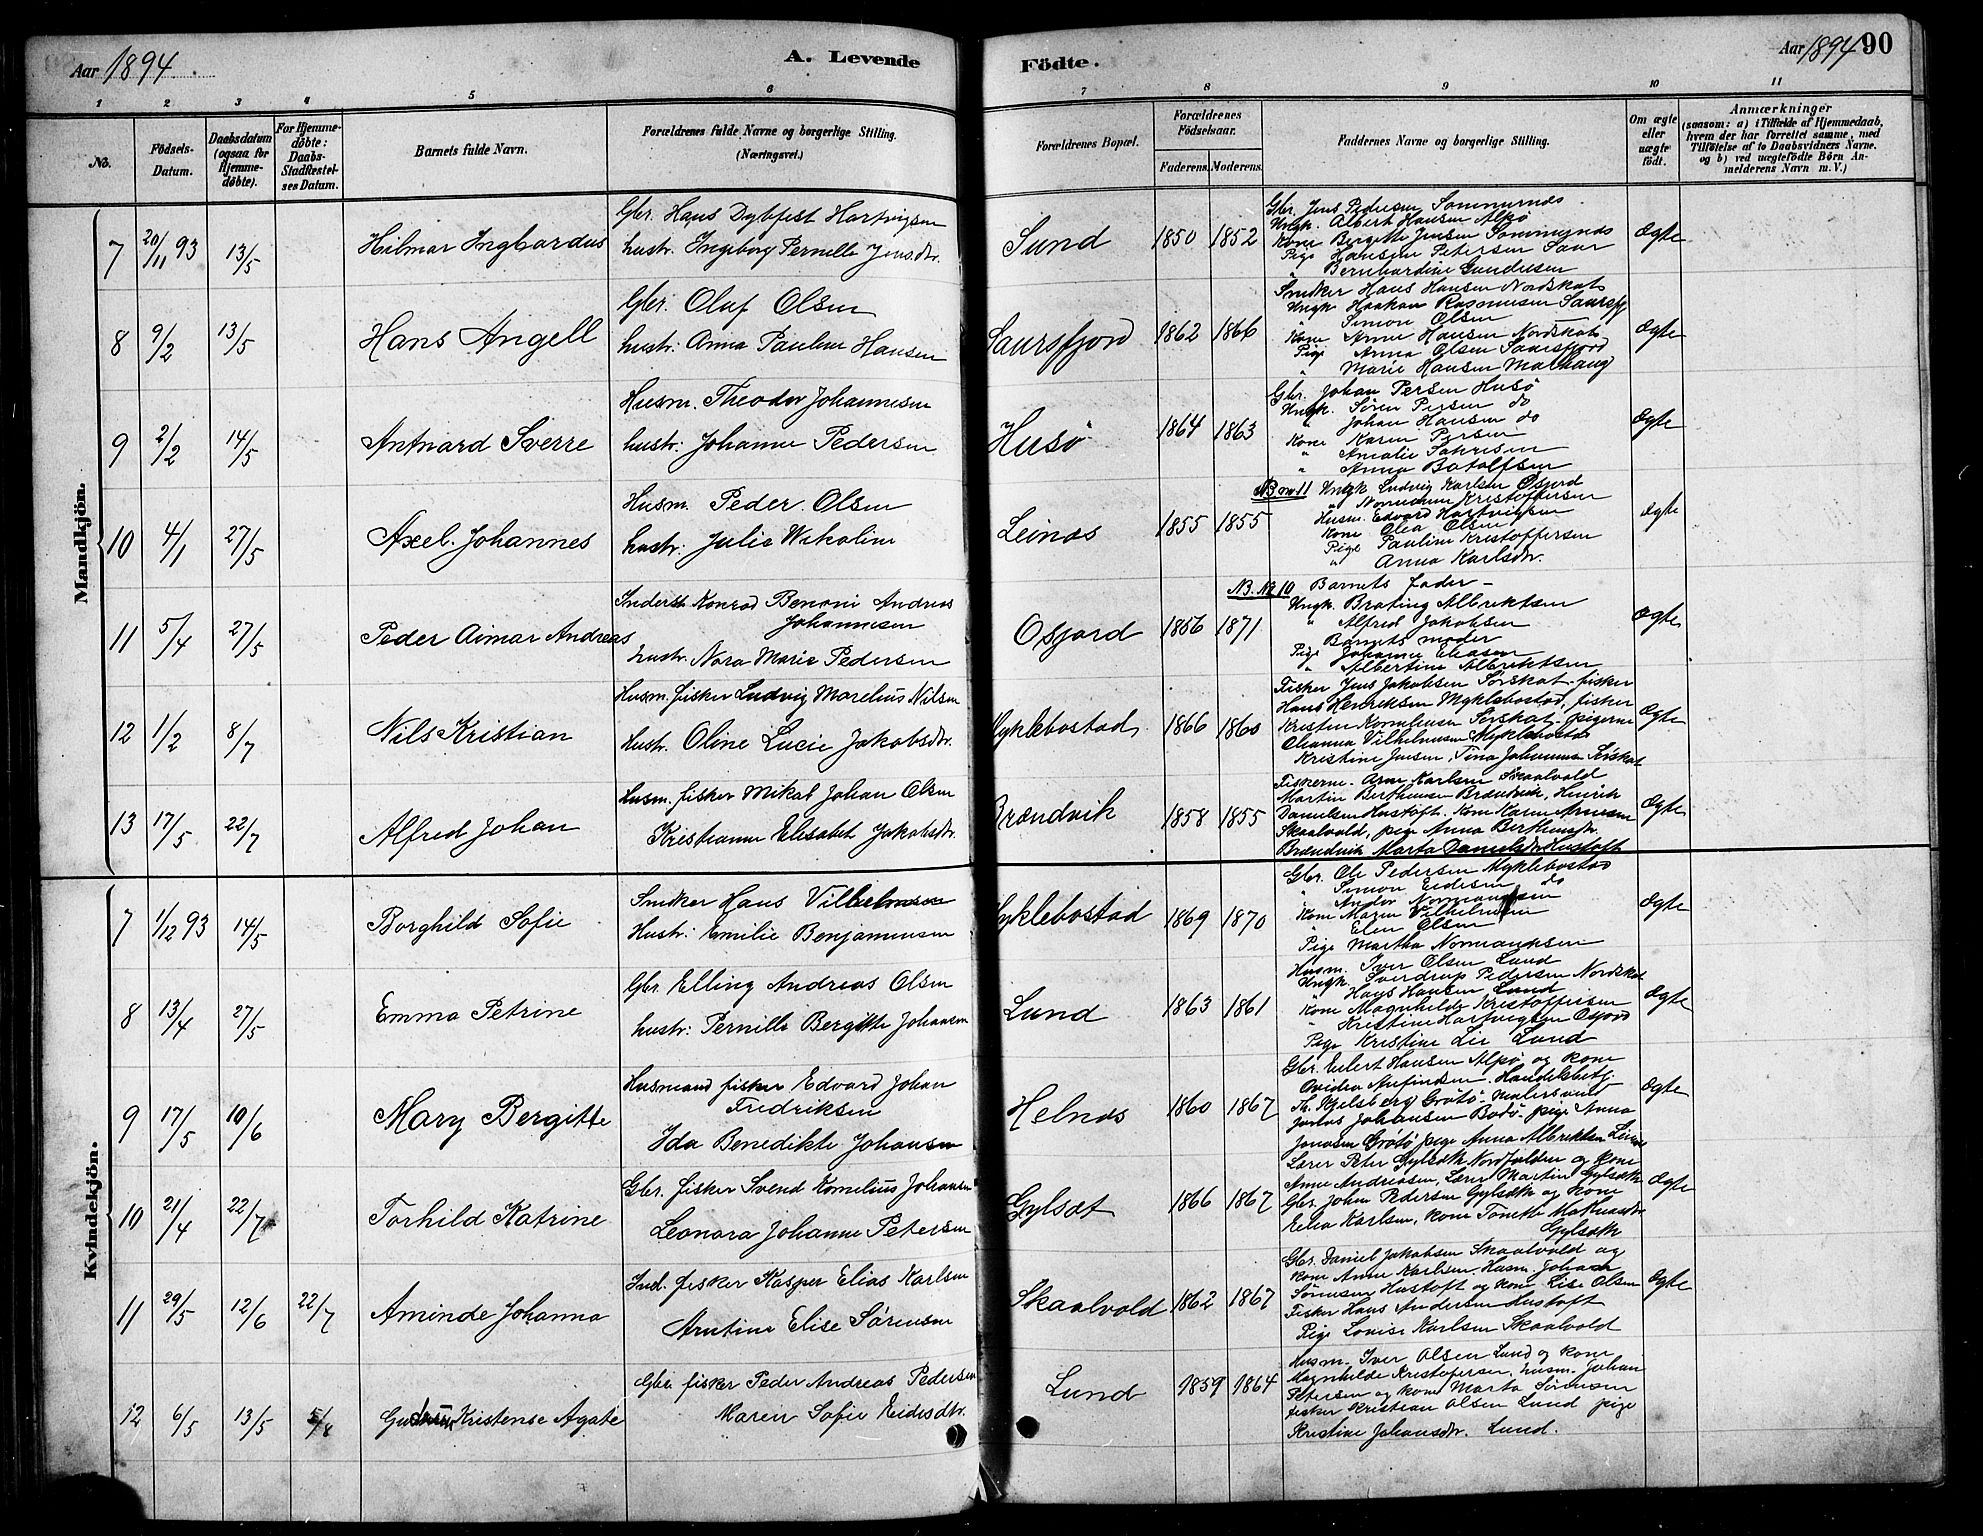 Aar 1894. A. Levende Födte. Aar 1894 90
1 2 3 4 5 6 7 8 9 10 11
No. Födsels-Datum. Daabsdatum (ogsaa for Hjemme-döbte). For Hjemme-döbte: Daabs-Stadfæstel-ses Datum. Barnets fulde Navn. Forældrenes fulde Navne og borgerlige Stilling. (Næringsvei.) Forældrenes Bopæl. Forældrenes Födselsaar. Faderens. Moderens. Faddernes Navne og borgerlige Stilling. Om ægte eller uægte födt. Anmærkninger (saasom: a) i Tilfælde af Hjemmedaab, hvem der har forrettet samme, med Tilföielse af to Daabsvidners Navne. og b) ved uægtefödte Börn An-melderens Navn m. V.)
Mandkjön.
7 20/11 93 13/5 Hilmar Ingbardus
Gbr. Hans Dybfest Hartvigsen
hustr. Ingeborg Pernille Jensdtr.
Sund 1850 1852 Ægte
Gbr. Jens Pedersen Sommernes
Ungk. Albert Hansen Alpø
Kone Bergitte Jensen Sommernes
Pige Hansen Petersen Saur
" Bernhardine Gundersen
8 9/2 13/5 Hans Angell
Gbr. Oluf Olsen
hustr: Anna Pauline Hansen
Saursfjord 1862 1866 Ægte
Snedker Hans Hansen Nordskat
Ungk. Haakon Rasmussen Saursfj
" Simon Olsen
Kone Anne Hansen Nordskat
Pige Anna Olsen Saursfjord
" Marie Hansen Marhaug
9 2/2 14/5 Antnard Sverre
Husm. Theodor Johannesen
hustr: Johanne Pedersen
Husø 1864 1863 Ægte
Gbr. Johan Persen Husø
Ungk. Søren Persen do
" Johan Hansen do
Kone Karen Persen
" Amalie
" Anna Botolfsen
10 4/1 27/5 Axel Johannes
Husm. Peder Olsen
hustr. Julie
Leines 1855 1855 Ægte
NB no 11 Ungk Ludvig Karlsen Osjord
" Normann Kristoffersen
Husm. Edvard Hartvigsen
Kone Olea Olsen
Pige Pauline Kristoffersen
" Anna Karlsdtr.
11 5/4 27/5 Peder Aimar Andreas
Inderst Konrad Benoni Andreas
Johannesen
hustr. Nora Marie Pedersen
Osjord 1856 1871 Ægte
NB. No 10 Barnets Fader -
Ungk. Brating Albrektsen
" Alfred Jakobsen
Barnets moder
Pige Johanne Eliasen
" Albertine Albrektsen
12 1/2 8/7 Nils Kristian
Husm. fisker Ludvig Morelius Nilsen
Hustr. Oline Lucie Jakobsdtr.
Myklebostad 1866 1860 Ægte
Fisker Jens Jakobsen Sørskat, fisker
Hans Henriksen Myklebostad, fisker
Kristen Korneliusen Sørskat - pigerne
Oleanna Vilhelmsen Myklebostad
Kristine Jensen, Tina Johannesen Sørskat
13 17/5 22/7 Alfred Johan
Husm. fisker Mikal Johan Olsen
Kristianne Elisabet Jakobsdtr.
Brændvik 1858 1855 Ægte
Fiskerne. Arne Karlsen Skaalvold
Martin Berthensen Brændvik, Henrik
Danielsen Hustoft. Kone Karen Arnesen
Skaalvold, pige Anna Berthensdtr.
Brændvik Marta Danielsdtr Hustoft
Kvindekjön.
7 1/12 93 14/5 Borghild Sofie
Snedker Hans Vilhelmsen
Hustr: Emilie Benjaminsen
Myklebostad 1869 1870 Ægte
Gbr. Ole Pedersen Myklebostad
" Simon Eidesen do
" Andor Normannsen
Kone Maren Vilhelmsen
" Elen Olsen
Pige Martha Normannsen
8 13/4 27/5 Emma Petrine
Gbr. Elling Andreas Olsen
hustr: Pernille Bergitte Johansen
Lund 1863 1861 Ægte
Husm. Iver Olsen Lund
Ungk. Sverdrup Pedersen Nordskot
" Hans Hansen Lund
Kone Magnhilde Kristoffersen
" Kristine Hartvigsen Osjord
Pige Kristine Lie Lund
9 17/5 10/6 Mary Bergitte
Husmand fisker Edvard Johan
Fredriksen
Ida Benedikte Johansen
Helnes 1860 1867 Ægte
Gbr. Eilert Hansen Alpø og kone
Ovidea Anfindsen. Handelsbetj.
Th. Kjelsberg Grøtø. Malersvend
Johansen Bodø - pige Anna
Jonassen Grøtø pige Anna Albrektsen Leines
10 21/4 22/7 Torhild Katrine
Gbr. fisker Svend Kornelius Johansen
Leonora Johanne Petersen
Gylset 1866 1867 Ægte
Lærer Peter Gylseth Nordfolden og kone
Anne Andreasen, Lærer Martin Gylseth
Gbr. Johan Pedersen Gylseth og kone
Elea Karlsen, kone Tonette Mathiasdtr
Gylseth
11 29/5 12/6 22/7 Aminde Johanna
Ind. fisker Kasper Elias Karlsen
Arntine Elise Sørensen
Skaalvold 1862 1867 Ægte
Gbr. Daniel Jakobsen Skaalvold og
kone Anne Karlsen. Husm. Johan
Sørensen Hustoft og kone Lise Olsen
Fisker Hans Andersen Hustoft
Pige Lovise Karlsen Skaalvold
12 6/5 13/5 5/8 Gudrun Kristense Agate
Gbr. fisker Peder Andreas Pedersen
Maren Sofie Eidesdtr.
Lund 1859 1864
Husm. Iver Olsen Lund og kone
Magnhilde Kristofersen, husm. Johan
Petersen og kone Marta Sørensen
fisker Kristian Olsen Lund pige
Kristine Johansdtr. Lund.